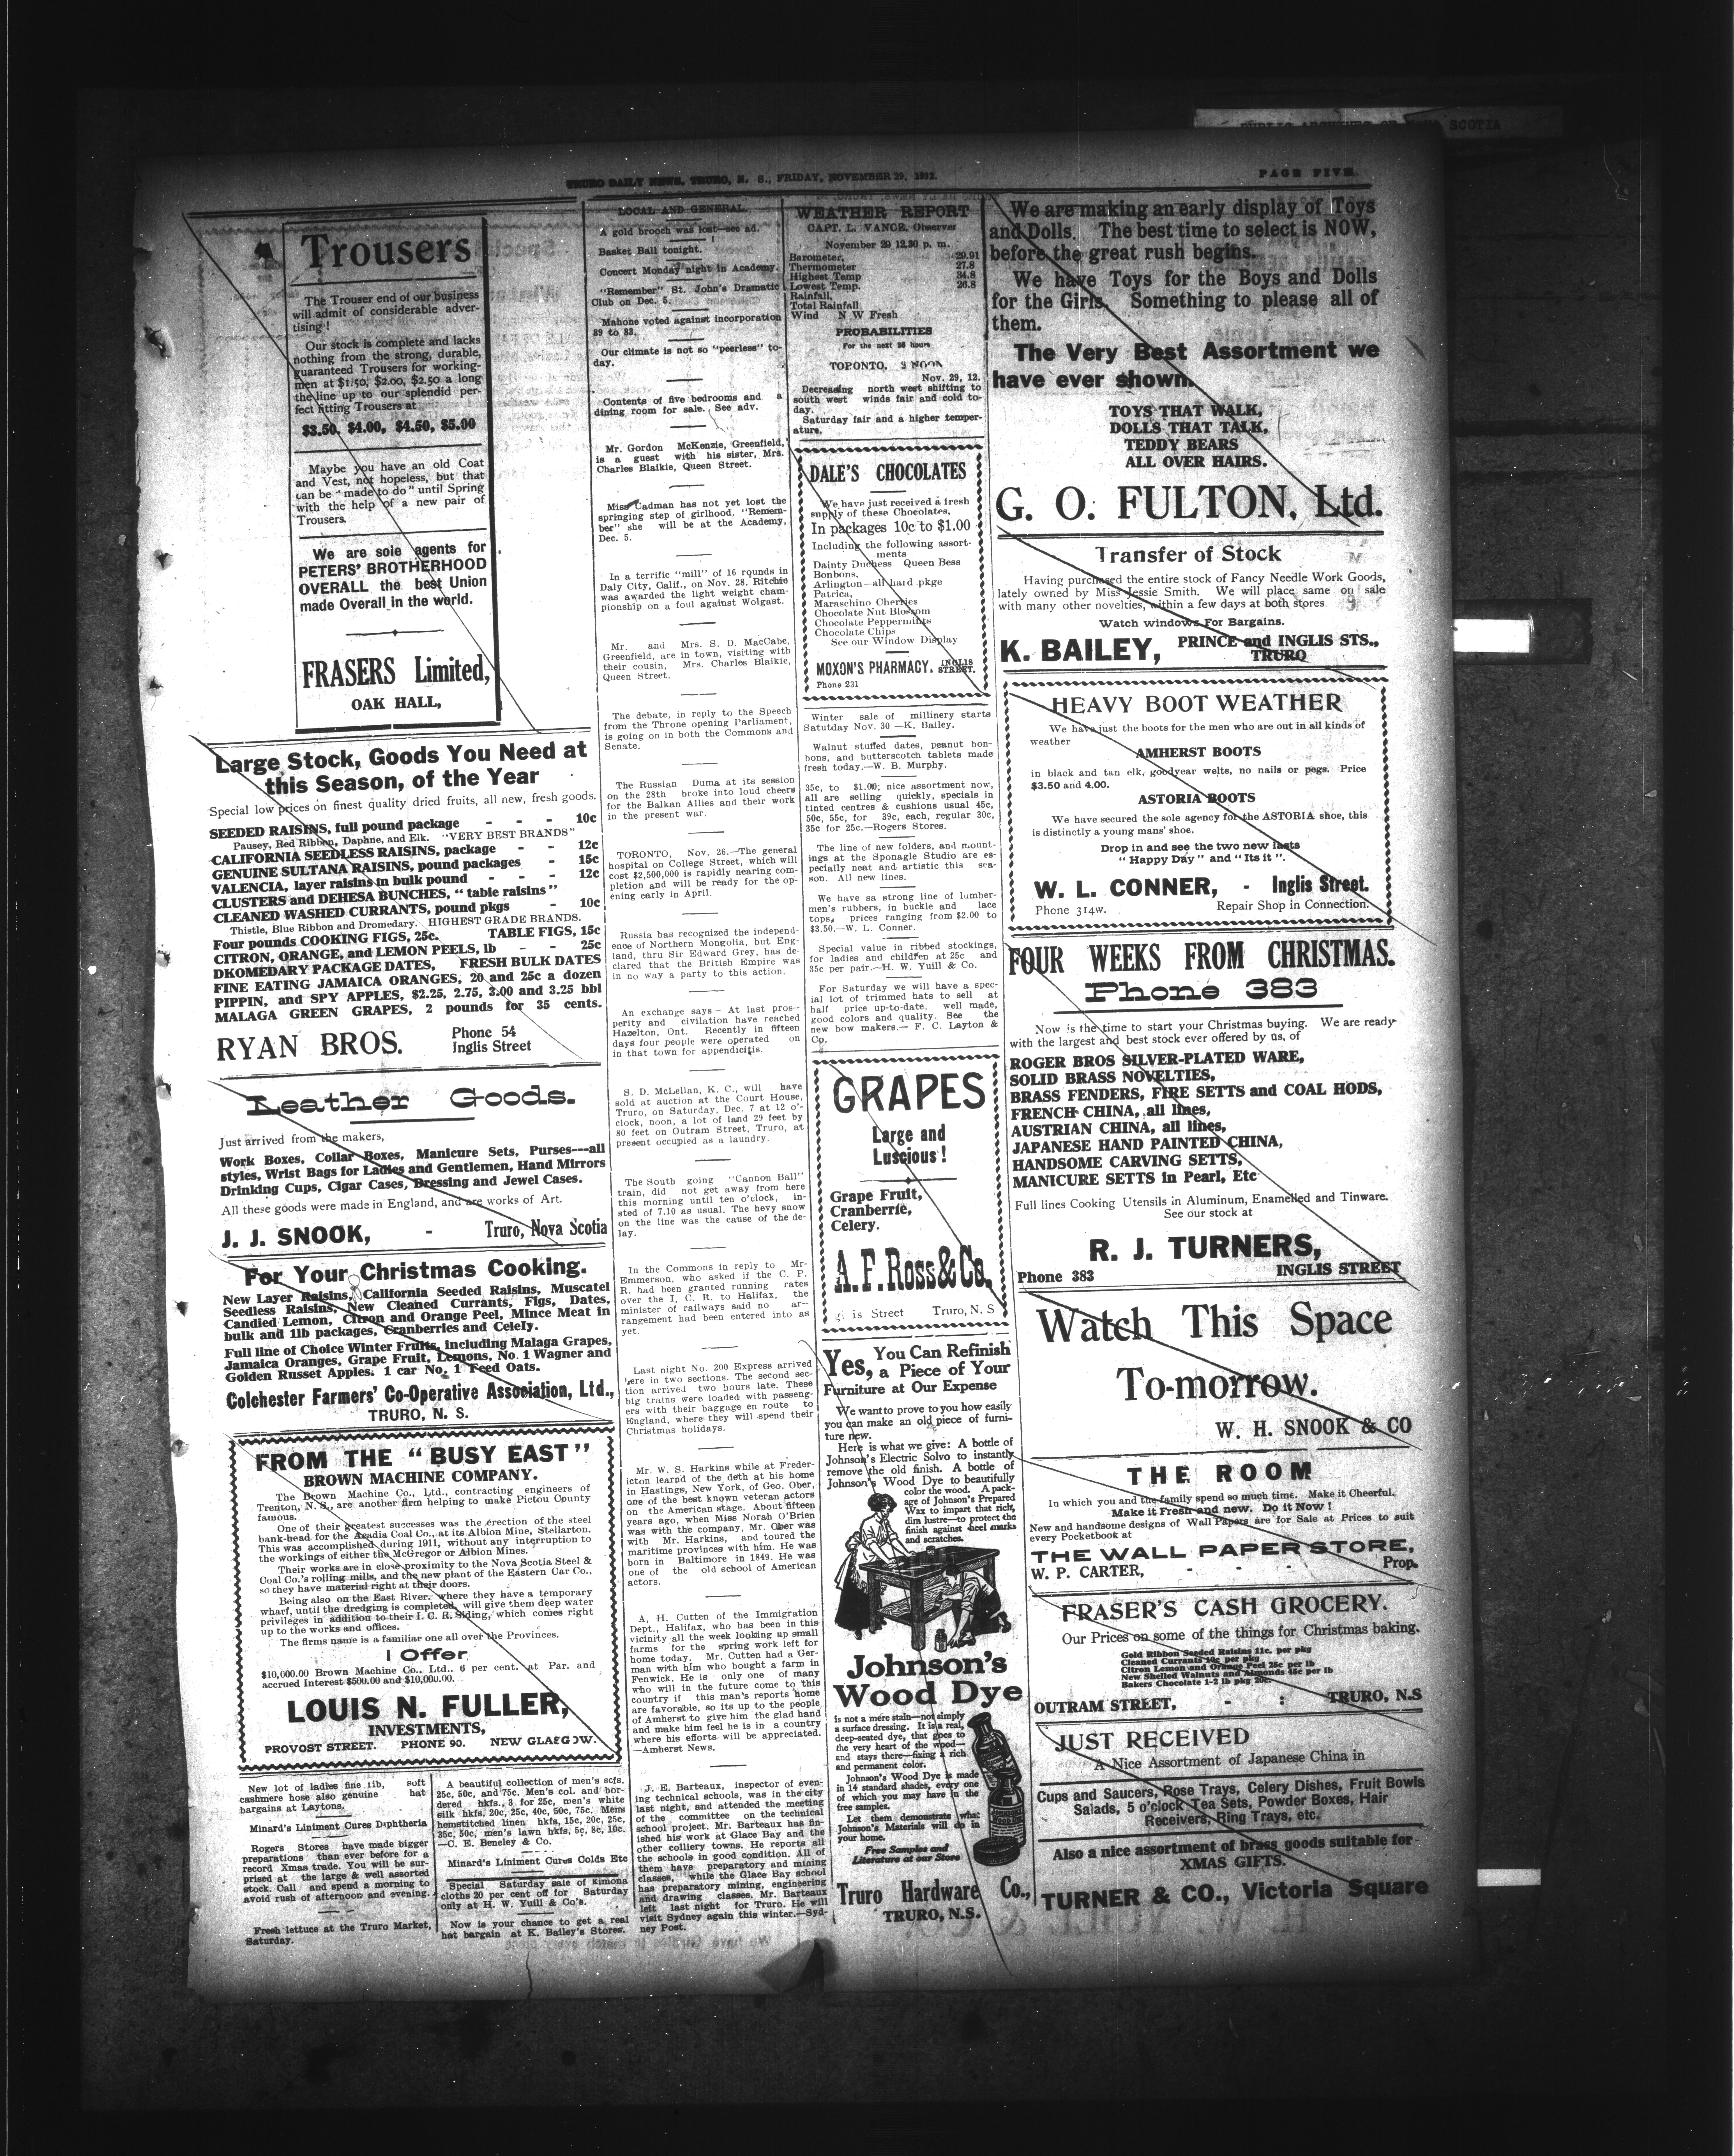 TRURO DAILY NEWS, TRURO, N. S., FRIDAY, NOVEMBER 29, 1912.
PAGE FIVE.
Trousers
The Trouser end of our business
will admit of considerable adver-
tising!
Our stock is complete and lacks
nothing from the strong, durable,
guaranteed Trousers for working-
men at $1.50, $2.00, $2.50 a long
the line up to our splendid per-
fect fitting Trousers at
$3.50, $4.00, $4.50, $5.00
Maybe you have an old Coat
and Vest, not hopeless, but that
can be "made to do" until Spring
with the help of a new pair of
Trousers.
We are sole agents for
PETERS' BROTHERHOOD
OVERALL the best Union
made Overall in the world.
FRASERS Limited,
OAK HALL,
Large Stock, Goods You Need at
this Season, of the Year
Special low prices on finest quality dried fruits, all new, fresh goods.
SEEDED RAISINS, full pound package - - - 10c
Pausey, Red Ribbon, Daphne, and Elk. "VERY BEST BRANDS"
CALIFORNIA SEEDLESS RAISINS, package - - 12c
GENUINE SULTANA RAISINS, pound packages - 15c
VALENCIA, layer raisins in bulk pound - - - 12c
CLUSTERS and DEHESA BUNCHES, "table raisins"
CLEANED WASHED CURRANTS, pound pkgs - 10c
Thistle, Blue Ribbon and Dromedary. HIGHEST GRADE BRANDS.
Four pounds COOKING FIGS, 25c. TABLE FIGS, 15c
CITRON, ORANGE, and LEMON PEELS, lb - - 25c
DKOMEDARY PACKAGE DATES, FRESH BULK DATES
FINE EATING JAMAICA ORANGES, 20 and 25c a dozen
PIPPIN, and SPY APPLES, $2.25, 2.75, 3.00 and 3.25 bbl
MALAGA GREEN GRAPES, 2 pounds for 35 cents.
RYAN BROS.
Phone 54
Inglis Street
Leather Goods.
Just arrived from the makers,
Work Boxes, Collar Boxes, Manicure Sets, Purses---all
styles, Wrist Bags for Ladies and Gentlemen, Hand Mirrors
Drinking Cups, Cigar Cases, Dressing and Jewel Cases.
All these goods were made in England, and are works of Art.
J. J. SNOOK, - Truro, Nova Scotia
For Your Christmas Cooking.
New Layer Raisins, California Seeded Raisins, Muscatel
Seedless Raisins, New Cleaned Currants, Figs, Dates,
Candied Lemon, Citron and Orange Peel, Mince Meat in
bulk and 1lb packages, Cranberries and Celely.
Full line of Choice Winter Fruits, including Malaga Grapes,
Jamaica Oranges, Grape Fruit, Lemons, No. 1 Wagner and
Golden Russet Apples. 1 car No. 1 Feed Oats.
Colchester Farmers' Co-Operative Association, Ltd.,
TRURO, N. S.
FROM THE "BUSY EAST"
BROWN MACHINE COMPANY.
The Brown Machine Co., Ltd., contracting engineers of
Trenton, N. S., are another firm helping to make Pictou County
famous.
One of their greatest successes was the erection of the steel
bank-head for the Acadia Coal Co., at its Albion Mine, Stellarton.
This was accomplished during 1911, without any interruption to
the workings of either the McGregor or Albion Mines.
Their works are in close proximity to the Nova Scotia Steel &
Coal Co.'s rolling mills, and the new plant of the Eastern Car Co.,
so they have material right at their doors.
Being also on the East River, where they have a temporary
wharf, until the dredging is completed, will give them deep water
privileges in addition to their I. C. R. Siding, which comes right
up to the works and offices.
The firms name is a familiar one all over the Provinces.
I Offer
$10,000.00 Brown Machine Co., Ltd.. 6 per cent. at Par. and
accrued Interest $500.00 and $10,000.00.
LOUIS N. FULLER,
INVESTMENTS,
PROVOST STREET. PHONE 90. NEW GLASGOW.
New lot of ladies fine rib, soft
cashmere hose also genuine hat
bargains at Laytons.
Minard's Liniment Cures Diphtheria
Rogers Stores have made bigger
preparations than ever before for a
record Xmas trade. You will be sur-
prised at the large & well assorted
stock. Call and spend a morning to
avoid rush of afternoon and evening.
Fresh lettuce at the Truro Market,
Saturday.
A beautiful collection of men's scfs.
25c, 50c, and 75c. Men's col. and bor-
dered hkfs., 3 for 25c, men's white
silk hkfs, 20c, 25c, 40c, 50c, 75c. Mens
hemstitched linen hkfs, 15c, 20c, 25c,
35c, 50c, men's lawn hkfs, 5c, 8c, 10c.
—C. E. Beneley & Co.
Minard's Liniment Cures Colds Etc
Special Saturday sale of kimona
cloths 20 per cent off for Saturday
only at H. W. Yuill & Co's.
Now is your chance to get a real
hat bargain at K. Bailey's Stores.
LOCAL AND GENERAL.
A gold brooch was lost—see ad.
Basket Ball tonight.
Concert Monday night in Academy.
"Remember" St. John's Dramatic
Club on Dec. 5.
Mahone voted against incorporation
89 to 83.
Our climate is not so "peerless" to-
day.
Contents of five bedrooms and a
dining room for sale. See adv.
Mr. Gordon McKenzie, Greenfield,
is a guest with his sister, Mrs.
Charles Blaikie, Queen Street.
Miss Cadman has not yet lost the
springing step of girlhood. "Remem-
ber" she will be at the Academy,
Dec. 5.
In a terrific "mill" of 16 rounds in
Daly City, Calif., on Nov. 28. Ritchie
was awarded the light weight cham-
pionship on a foul against Wolgast.
Mr. and Mrs. S. D. MacCabe,
Greenfield, are in town, visiting with
their cousin, Mrs. Charles Blaikie,
Queen Street.
The debate, in reply to the Speech
from the Throne opening Parliament,
is going on in both the Commons and
Senate.
The Russian Duma at its session
on the 28th broke into loud cheers
for the Balkan Allies and their work
in the present war.
TORONTO, Nov. 26.—The general
hospital on College Street, which will
cost $2,500,000 is rapidly nearing com-
pletion and will be ready for the op-
ening early in April.
Russia has recognized the independ-
ence of Northern Mongolia, but Eng-
land, thru Sir Edward Grey, has de-
clared that the British Empire was
in no way a party to this action.
An exchange says— At last pros-
perity and civilation have reached
Hazelton, Ont. Recently in fifteen
days four people were operated on
in that town for appendicitis.
S. D. McLellan, K. C., will have
sold at auction at the Court House,
Truro, on Saturday, Dec. 7 at 12 o'-
clock, noon, a lot of land 29 feet by
80 feet on Outram Street, Truro, at
present occupied as a laundry.
The South going "Cannon Ball"
train, did not get away from here
this morning until ten o'clock, in-
sted of 7.10 as usual. The hevy snow
on the line was the cause of the de-
lay.
In the Commons in reply to Mr-
Emmerson, who asked if the C. P.
R. had been granted running rates
over the I, C. R. to Halifax, the
minister of railways said no ar-
rangement had been entered into as
yet.
Last night No. 200 Express arrived
here in two sections. The second sec-
tion arrived two hours late. These
big trains were loaded with passeng-
ers with their baggage en route to
England, where they will spend their
Christmas holidays.
Mr. W. S. Harkins while at Freder-
icton learnd of the deth at his home
in Hastings, New York, of Geo. Ober,
one of the best known veteran actors
on the American stage. About fifteen
years ago, when Miss Norah O'Brien
was with the company, Mr. Ober was
with Mr. Harkins, and toured the
maritime provinces with him. He was
born in Baltimore in 1849. He was
one of the old school of American
actors.
A, H. Cutten of the Immigration
Dept., Halifax, who has been in this
vicinity all the week looking up small
farms for the spring work left for
home today. Mr. Cutten had a Ger-
man with him who bought a farm in
Fenwick. He is only one of many
who will in the future come to this
country if this man's reports home
are favorable, so its up to the people
of Amherst to give him the glad hand
and make him feel he is in a country
where his efforts will be appreciated.
—Amherst News.
J. E. Barteaux, inspector of even-
ing technical schools, was in the city
last night, and attended the meeting
of the committee on the technical
school project. Mr. Barteaux has fin-
ished his work at Glace Bay and the
other colliery towns. He reports all
the schools in good condition. All of
them have preparatory and mining
classes, while the Glace Bay school
has preparatory mining, engineering
and drawing classes. Mr. Barteaux
left last night for Truro. He will
visit Sydney again this winter.—Syd-
ney Post.
WEATHER REPORT
CAPT. L. VANCE, Observer
November 29 12.30 p. m.
Barometer, 29.91
Thermometer 27.8
Highest Temp 34.8
Lowest Temp. 26.8
Rainfall,
Total Rainfall
Wind N W Fresh
PROBABILITIES
For the next 36 hours
TORONTO, NOON
Nov. 29, 12.
Decreasing north west shifting to
south west winds fair and cold to-
day.
Saturday fair and a higher temper-
ature.
DALE'S CHOCOLATES
We have just received a fresh
supply of these Chocolates,
In packages 10c to $1.00
Including the following assort-
ments
Dainty Duchess Queen Bess
Bonbons,
Arlington—all hard pkge
Patrica,
Maraschino Cherries
Chocolate Nut Blossom
Chocolate Peppermints
Chocolate Chips
See our Window Display
MOXON'S PHARMACY, INGLIS STREET.
Phone 231
Winter sale of millinery starts
Satutday Nov. 30 —K. Bailey.
Walnut stuffed dates, peanut bon-
bons, and butterscotch tablets made
fresh today.—W. B. Murphy.
35c, to $1.00; nice assortment now,
all are selling quickly, specials in
tinted centres & cushions usual 45c,
50c, 55c, for 39c, each, regular 30c,
35c for 25c.—Rogers Stores.
The line of new folders, and mount-
ings at the Sponagle Studio are es-
pecially neat and artistic this sea-
son. All new lines.
We have sa strong line of lumber-
men's rubbers, in buckle and lace
tops, prices ranging from $2.00 to
$3.50.—W. L. Conner.
Special value in ribbed stockings,
for ladies and children at 25c and
35c per pair.—H. W. Yuill & Co.
For Saturday we will have a spec-
ial lot of trimmed hats to sell at
half price up-to-date, well made,
good colors and quality. See the
new bow makers.— F. C. Layton &
Co.
GRAPES
Large and
Luscious!
Grape Fruit,
Cranberrie,
Celery.
A. F. Ross & Co.
is Street Truro, N. S
Yes, You Can Refinish
a Piece of Your
Furniture at Our Expense
We want to prove to you how easily
you can make an old piece of furni-
ture new.
Here is what we give: A bottle of
Johnson's Electric Solvo to instantly
remove the old finish. A bottle of
Johnson's Wood Dye to beautifully
color the wood. A pack-
age of Johnson's Prepared
Wax to impart that rich,
dim lustre—to protect the
finish against heel marks
and scratches.
Johnson's
Wood Dye
is not a mere stain—not simply
a surface dressing. It is a real,
deep-seated dye, that goes to
the very heart of the wood—
and stays there—fixing a rich
and permanent color.
Johnson's Wood Dye is made
in 14 standard shades, every one
of which you may have in the
free samples.
Let them demonstrate what
Johnson's Materials will do in
your home.
Free Samples and
Literature at our Store
Truro Hardware Co.,
TRURO, N.S.
We are making an early display of Toys
and Dolls. The best time to select is NOW,
before the great rush begins.
We have Toys for the Boys and Dolls
for the Girls. Something to please all of
them.
The Very Best Assortment we
have ever shown.
TOYS THAT WALK,
DOLLS THAT TALK,
TEDDY BEARS
ALL OVER HAIRS.
G. O. FULTON, Ltd.
Transfer of Stock
Having purchased the entire stock of Fancy Needle Work Goods,
lately owned by Miss Jessie Smith. We will place same on sale
with many other novelties, within a few days at both stores
Watch windows For Bargains.
K. BAILEY, PRINCE and INGLIS STS.,
TRURO
HEAVY BOOT WEATHER
We have just the boots for the men who are out in all kinds of
weather
AMHERST BOOTS
in black and tan elk, goodyear welts, no nails or pegs. Price
$3.50 and 4.00.
ASTORIA BOOTS
We have secured the sole agency for the ASTORIA shoe, this
is distinctly a young mans' shoe.
Drop in and see the two new lasts
"Happy Day" and "Its it".
W. L. CONNER, - Inglis Street.
Phone 314w. Repair Shop in Connection.
FOUR WEEKS FROM CHRISTMAS.
Phone 383
Now is the time to start your Christmas buying. We are ready
with the largest and best stock ever offered by us, of
ROGER BROS SILVER-PLATED WARE,
SOLID BRASS NOVELTIES,
BRASS FENDERS, FIRE SETTS and COAL HODS,
FRENCH CHINA, all lines,
AUSTRIAN CHINA, all lines,
JAPANESE HAND PAINTED CHINA,
HANDSOME CARVING SETTS,
MANICURE SETTS in Pearl, Etc
Full lines Cooking Utensils in Aluminum, Enamelled and Tinware.
See our stock at
R. J. TURNERS,
Phone 383 INGLIS STREET
Watch This Space
To-morrow.
W. H. SNOOK & CO
THE ROOM
In which you and the family spend so much time. Make it Cheerful.
Make it Fresh and new. Do it Now!
New and handsome designs of Wall Papers are for Sale at Prices to suit
every Pocketbook at
THE WALL PAPER STORE,
W. P. CARTER, - - - - Prop.
FRASER'S CASH GROCERY.
Our Prices on some of the things for Christmas baking.
Gold Ribbon Seeded Raisins 11c. per pkg
Cleaned Currants 10c per pkg
Citron Lemon and Orange Peel 25c per lb
New Shelled Walnuts and Almonds 45c per lb
Bakers Chocolate 1-2 lb pkg 20c.
OUTRAM STREET, - : TRURO, N.S
JUST RECEIVED
A Nice Assortment of Japanese China in
Cups and Saucers, Rose Trays, Celery Dishes, Fruit Bowls
Salads, 5 o'clock Tea Sets, Powder Boxes, Hair
Receivers, Ring Trays, etc.
Also a nice assortment of brass goods suitable for
XMAS GIFTS.
TURNER & CO., Victoria Square